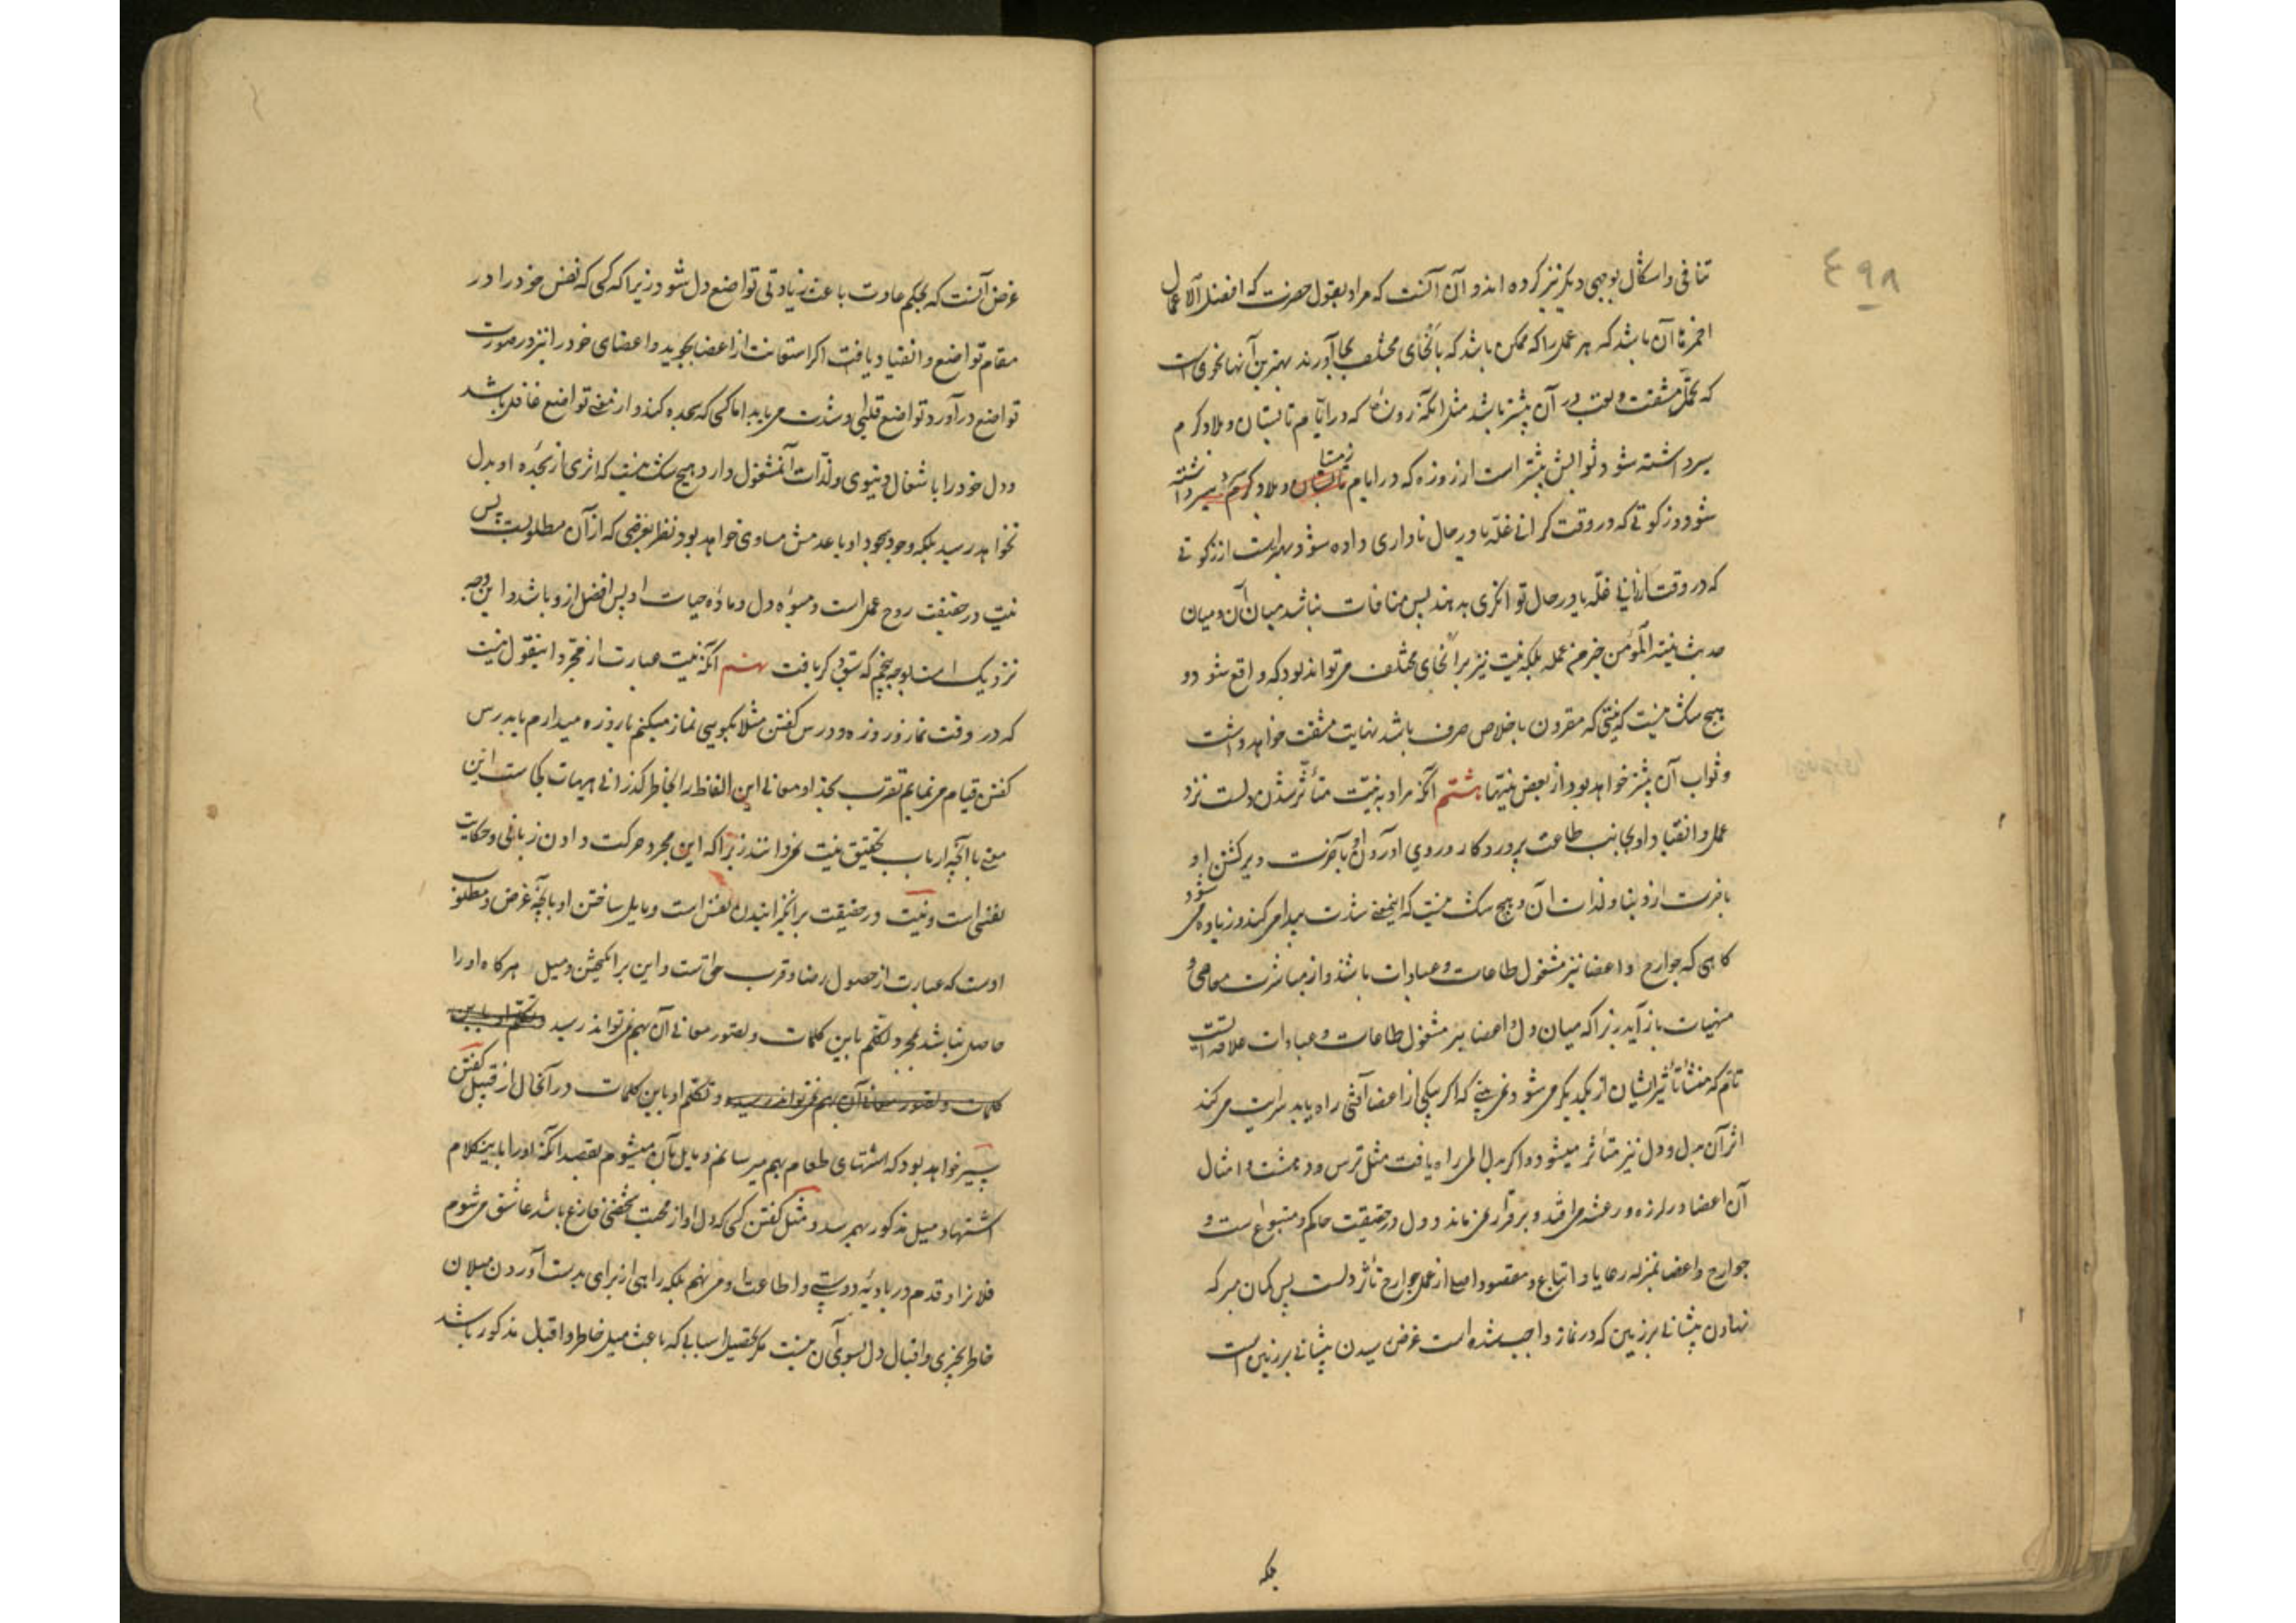 ۴۹۸
تنافی و اشکال بوجهی دیگر نیز کرده اند و آن آنست که مراد بقول حضرت که افضل الاعمال
احمزها آن باشد که هر عملی را که ممکن باشد که بأنحای مختلف بجا آورند بهترین آنها نحوی است
که تحمل مشقت و تعب در آن بیشتر باشد مثل آنکه روزه که در ایام تابستان و بلاد گرم
بسر داشته شود ثوابش بیشتر است از روزه که در ایام زمستان و بلاد سرد داشته
شود و زکوتی که در وقت گرانی غله یا در حال ناداری داده شود بهتر است از زکوتی
که در وقت ارزانی غله یا در حال توانگری بدهند پس منافات نباشد میان آن و میان
حدیث نیة المؤمن خیر من عمله بلکه نیت نیز بر انحای مختلف می تواند بود که واقع شود و
هیچ شک نیست که نیتی که مقرون باخلاص صرف باشد نهایت مشقت خواهد داشت
و ثواب آن بیشتر خواهد بود از بعض نیتها هشتم آنکه مراد به نیت متأثر شدن دلست نزد
عمل و انقیاد او بجانب طاعت پروردگار و روی آوردن او بآخرت و برگشتن او
بآخرت از دنیا و لذات آن و هیچ شک نیست که اینمعنی شدت پیدا می کند و زیاده می شود
گاهی که جوارح و اعضا نیز مشغول طاعات و عبادات باشند و از مباشرت معاصی و
منهیات باز آید زیرا که میان دل و اعضا نیز مشغول طاعات و عبادات علاقه ایست
تام که منشأ تأثیر ایشان از یکدیگر می شود نمی بینی که اگر بیکی از اعضا آفتی راه یابد سرایت می کند
اثر آن بدل و دل نیز متأثر میشود و اگر بدل المی راه یافت مثل ترس و دهشت و امثال
آن اعضا در لرزه و رعشه می افتد و برقرار نمی ماند و دل در حقیقت حاکم و متبوع است و
جوارح و اعضا بمنزله رعایا و اتباع و مقصود اصلی از عمل جوارح تأثر دلست پس گمان مبر که
نهادن پیشانی بر زمین که در نماز واجب شده است غرض رسیدن پیشانی بر زمین است
بلکه
غرض آنست که بحکم عادت باعث زیادتی تواضع دل شود زیرا که کسی که نفس خود را در
مقام تواضع و انقیاد یافت اگر استعانت از اعضا بجوید و اعضای خود را نیز در صورت
تواضع درآورد تواضع قلبی او شدت می یابد اما کسی که سجده کند و از معنی تواضع غافل باشد
و دل خود را باشغال دنیوی و لذات آن مشغول دارد هیچ شک نیست که اثری از سجده او بدل
نخواهد رسید بلکه وجود سجود او با عدمش مساوی خواهد بود نظر بغرضی که از آن مطلوبست پس
نیت در حقیقت روح عمل است و میوه دل و ماده حیات او پس افضل ازو باشد و این وجه
نزدیک است بوجه پنجم که سبق ذکر یافت نهم آنکه نیت عبارت از مجرد اینقول نیست
که در وقت نماز و روزه و درس گفتن مثلا بگویی نماز میکنم یا روزه میدارم یا بدرس
گفتن قیام می نمایم تقرب بخدا و معانی این الفاظ را بخاطر گذرانی هیهات کجاست این
معنی با آنچه ارباب تحقیق نیت می دانند زیرا که این مجرد حرکت دادن زبانی و حکایت
نفسی است و نیت در حقیقت برانگیزانیدن نفس است و مایل ساختن او بآنچه غرض و مطلوب
اوست که عبارت از حصول رضا و قرب حق است و این برانگیختن و میل هرگاه او را
حاصل نباشد بمجرد تکلم باین کلمات و تصور معانی آن بهم نمی تواند رسید و تکلم او باین
کلمات و تصور معانی آن بهم نمی تواند رسید و تکلم او باین کلمات در آنحال از قبیل گفتن
سیر خواهد بود که اشتهای طعام بهم میرسانم و مایل بآن میشوم بقصد آنکه او را باین کلام
اشتها و میل مذکور بهم رسد و مثل گفتن کسی که دل او از محبت شخصی فارغ باشد عاشق می شوم
فلانرا و قدم در بادیه دوستی و اطاعت او می نهم بلکه راهی از برای بدست آوردن میلان
خاطر بچیزی و اقبال دل بسوی آن نیست مگر تحصیل اسبابی که باعث میل خاطر و اقبال مذکور باشد